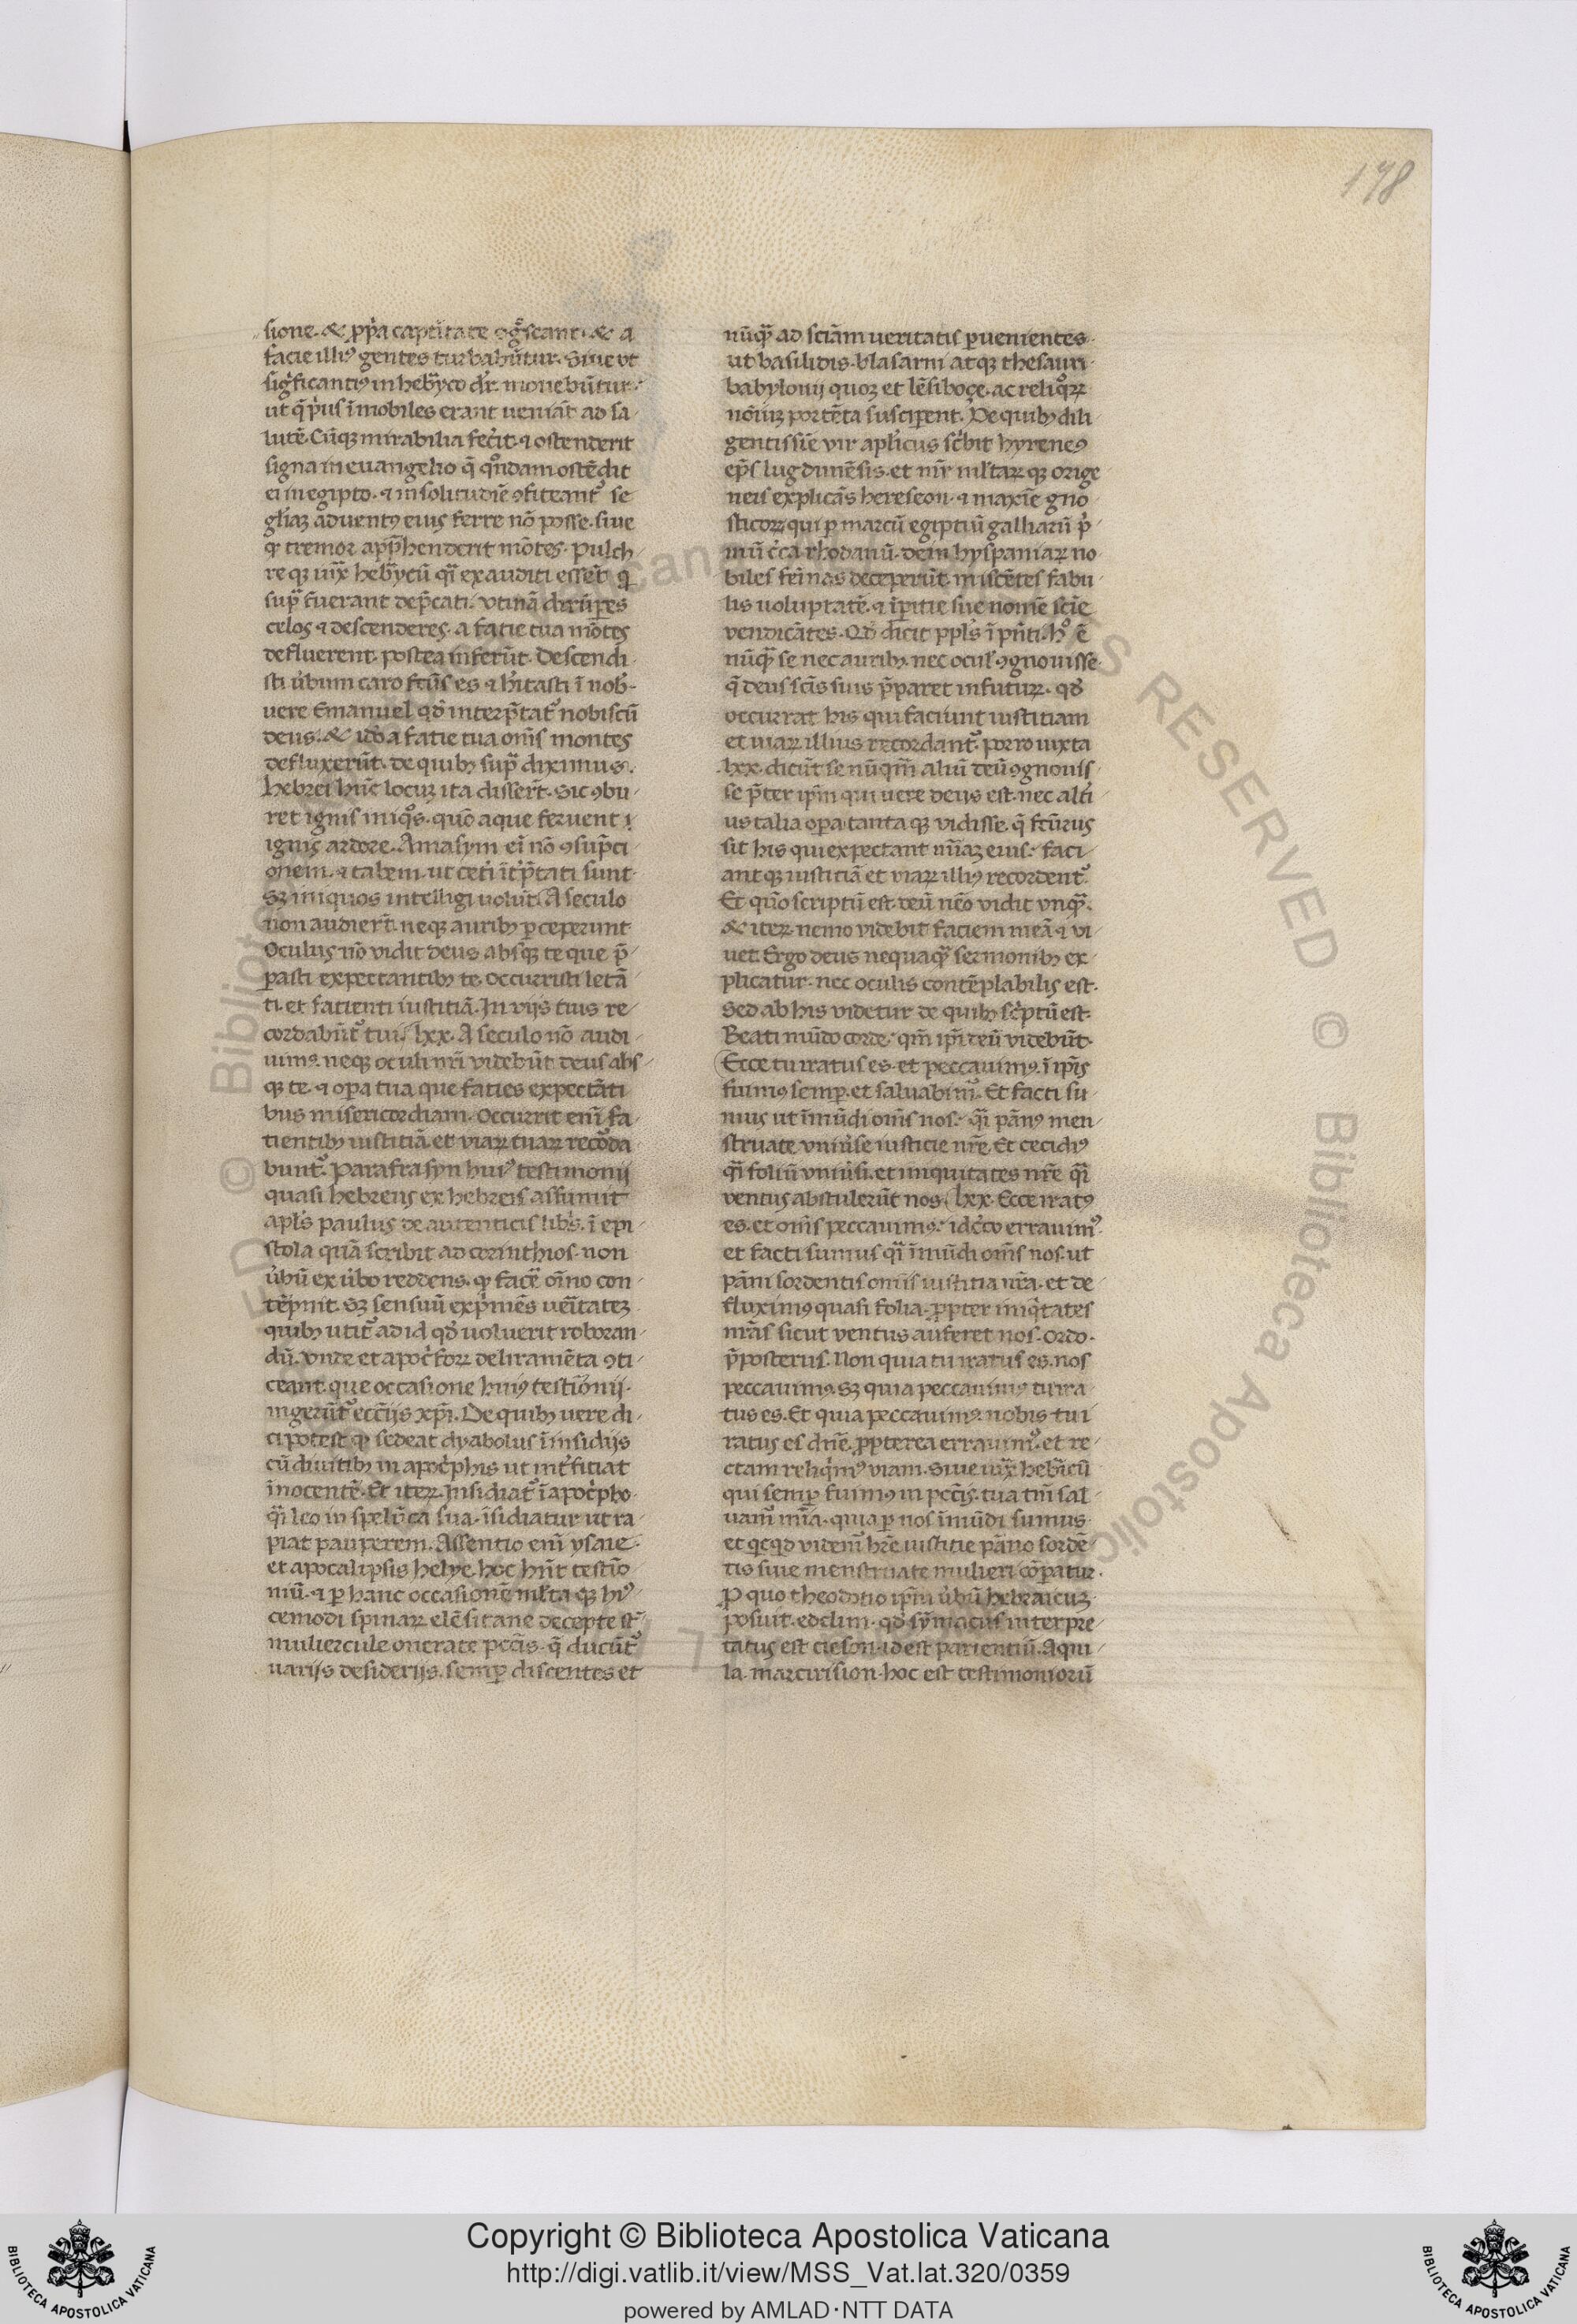 178
sione. & ꝓp̄a captiuitate ꝯgͦscant. & a
facie illiꝰ gentes turbabūtur. Siue ut
sig̊ficantiꝰ in hebͣyco d̄r. mouebūtur.
ut q̄ pͥus īmobiles erant ueniāt ad sa
lutē. Cūqꝫ mirabilia fecͥit. ⁊ ostenderit
signa in euangelio q̄ qͦndam ostēdit
ei in egipto. ⁊ in solitudīe ꝯfiteantᷣ se
gl̄iaꝫ aduentꝰ eius ferre nō posse. siue
qͥ tremor app̄henderit mōtes. Pulch
re qꝫ iuxͣ hebͣycū qͣi exauditi essēt qͥ
supͣ fuerant dep̄cati. Utinā dirūpes
celos ⁊ descenderes. a fatie tua mōtes
defluerent. postea inferūt. Descendi
sti ūbum caro fc̄us es ⁊ hͣitasti ī nob̄.
uere Emanuel qd̄ interp̄tatᷣ nobiscū
deus. & iđo a fatie tua om̄s montes
defluxerūt. de quibꝫ supͣ diximus.
hebrei hūc locuꝫ ita disserūt. Sic ꝯbu
ret ignis iniqͦs. quō aque feruent ı
ignis ardore. Amasym ei nō ꝯsūpti
onem. ⁊ tabem. ut ceti īt̄p̄tati sunt
Sꝫ iniquos intelligi uolūt. A seculo
non audierūt neqꝫ auribꝫ ꝑceperunt
Oculus nō vidit deus absqꝫ te que p̄
pasti expectantibꝫ te. Occurristi letā
ti. et facienti iustitiā. In vijs tuis re
cordabūtᷣ tui. lxx. A seculo nō audi
uimꝰ. neqꝫ oculi nr̄i videbūt deus abs
qꝫ te. ⁊ oꝑa tua que faties expectāti
bus misericordiam. Occurrit enī fa
tientibꝫ iustitiā. et viaꝝ tuaꝝ recorda
buntᷣ. Parafrasyn huiꝰ testimonij
quasi hebreus ex hebreis assumit
apl̄s paulus de autenticis libͥs. ī epi
stola quā scribit ad corinthios. non
ūbū ex ūbo reddens. qͥ facē oīno con
tēpnit. Sꝫ sensuū expͥmēs ueritateꝫ
quibꝫ utitᷣ ad id qd̄ uoluerit roboran
dū. Unde et apocͥfoꝝ deliramēta ꝯti
ceant. que occasione huiꝰ testīonij
ingerūtᷣ ecc̄ijs xp̄i. De quibꝫ uere di
ci potest qͥ sedeat dyabolus ī insidijs
cū diuitibꝫ in apocͥphis ut int̄ficiat
īnocentē. Et iteꝝ. Insidiatᷣ ī apocͥpho
qͣi leo in spelūca sua. īsidiatur ut ra
piat pauperem. Assentio enī ysaie
et apocalipsis helye. hoc hn̄t testīo
niū. ⁊ ꝑ hanc occasionē ml̄ta qꝫ hiꝰ
cemodi spinaꝝ elēsitane decepte st̄
muliercule onerate pcc̄is. q̄ ducūtᷣ
uarijs desiderijs. semꝑ discentes et
nūqͣ ad sciam ueritatis ꝑuenientes
ut basilidis. blasarni atqꝫ thesauri
babylonij quoꝫ et lēsiboçe. ac reliqͦꝝ
noīuꝫ portēta susciꝑent. De quibꝫ dili
gentissīe vir aplicus scͥbit hyreneꝰ
ep̄s lugdunēsis. et mr̄ ml̄taꝝ qꝫ orige
neis explicās hereseon. ⁊ maxīe gno
sticoꝝ qui ꝑ marcū egiptiū galliarū pͥ
mū cͥca rhodanū. dein hyspaniaꝝ no
biles femīas deceperūt. miscētes fabu
lis uoluptatē. ⁊ īꝑitie sue nomē scīe
vendicātes. Qd̄ dicit ppl̄s ī pn̄ti. hͦ ē
nūqͣ se nec auribꝫ. nec ocul̄ ꝯgnouisse
q̄ deus scīs suis p̄paret in futuꝝ. qd̄
occurrat his qui faciunt iustitiam
et uiaꝝ illius recordantᷣ. porro iuxta
lxx. dicūt se nūqm̄ aliū deū ꝯgnouis
se p̄ter ip̄m qui uere deus est. nec altͥi
us talia oꝑa tanta qꝫ vidisse. q̄ fcūrus
sit his qui expectant mīaꝫ eius. faci
ant qꝫ iustitiā et viaꝝ illiꝰ recordentᷣ.
Et quō scriptū est. deū nēo vidit vnqͣ.
& iteꝝ. nemo videbit faciem meā. ⁊ vi
uet. Ergo deus nequaqͣ sermonibꝫ ex
plicatur. nec oculis contēplabilis est.
Sed ab his videtur de quibꝫ scͥptū est.
Beati mūdo corde. qm̄ ip̄i deū videbūt.
Ecce tu iratus es. et peccauimꝰ. ī ip̄is
fuimꝰ semꝑ. et saluabimᷣ. Et facti su
mus ut īmūdi om̄s nos. qͣi pānꝰ men
struate vniūse iusticie nr̄e. Et cecidiꝰ
qͣi foliū vniūsi. et iniquitates nr̄e qͣi
ventus abstulerūt nos. lxx. Ecce iratꝰ
es. et om̄s peccauimꝰ. idcͥco errauimꝰ.
et facti sumus qͣi īmūdi om̄s nos. ut
pāni sordentis omīs iustitia nr̄a. et de
fluximꝰ quasi folia. ꝓpter iniqͥtates
nrās sicut ventus auferet nos. Ordo
p̄posterus. Non quia tu iratus es. nos
peccauimꝰ. Sꝫ quia peccauimꝰ tu ira
tus es. Et quia peccauimꝰ nobis tu i
ratus es dn̄e. ꝓpterea errauimꝰ. et re
ctam reliqͥmꝰ viam. Siue iuxͣ hebͣicū
qui semꝑ fuimꝰ in pcc̄is. tua tm̄ sal
uamᷣ mīa. quia ꝑ nos īmūdi sumus
et qͥcqͥd videmᷣ hr̄e iustitie pāno sordē
tis siue menstruate mulieri cōꝑatur.
Pro quo theodotio ip̄m ūbū hebraicuꝫ
posuit. edclim. qd̄ sȳmacus interpre
tatus est cieson. id est parientiū. Aqui
la. marcirision. hoc est testimoniorū
Copyright © Biblioteca Apostolica Vaticana
http://digi.vatlib.it/view/MSS_Vat.lat.320/0359
powered by AMLAD·NTT DATA